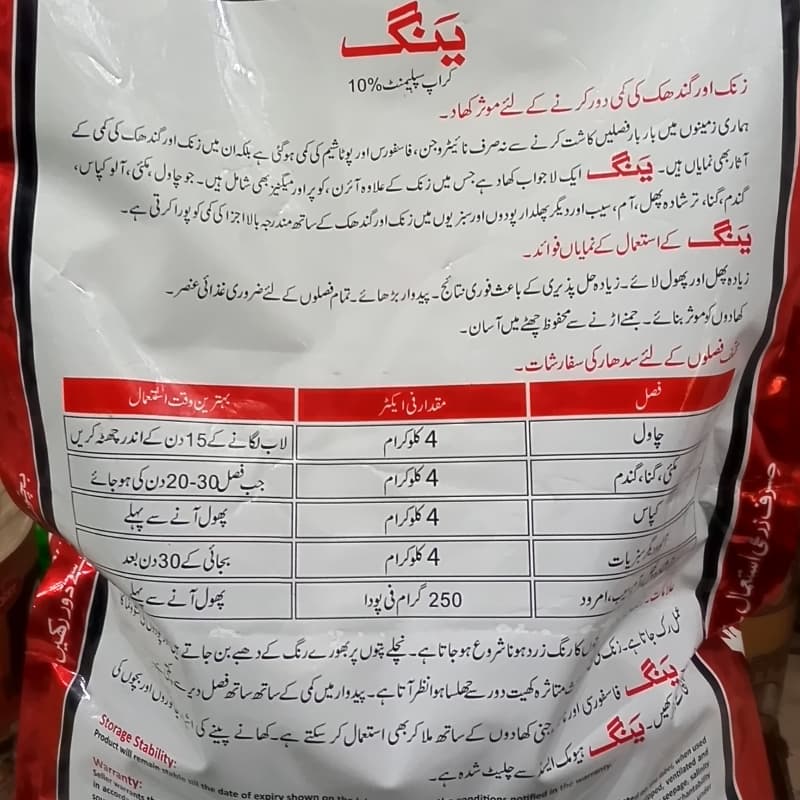 ینگ
کراپ سپلیمنٹ %10
زنک اور گندھک کی کمی دور کرنے کے لئے موثر کھاد۔
ہماری زمینوں میں بار بار فصلیں کاشت کرنے سے نہ صرف نائیٹروجن، فاسفورس اور پوٹاشیم کی کمی ہوگئی ہے بلکہ ان میں زنک اور گندھک کی کمی کے
آثار بھی نمایاں ہیں۔ ینگ ایک لاجواب کھاد ہے جس میں زنک کے علاوہ آئرن، کوپر اور میگنیز بھی شامل ہیں۔ جو چاول، مکئی، آلو کپاس،
گندم، گنا، ترشادہ پھل، آم، سیب اور دیگر پھلدار پودوں اور سبزیوں میں زنک اور گندھک کے ساتھ مندرجہ بالا اجزا کی کمی کو پورا کرتی ہے۔
ینگ کے استعمال کے نمایاں فوائد۔
زیادہ پھل اور پھول لائے۔ زیادہ حل پذیری کے باعث فوری نتائج۔ پیدوار بڑھائے۔ تمام فصلوں کے لئے ضروری غذائی عنصر۔
کھادوں کو موثر بنائے۔ جمنے اڑنے سے محفوظ چھٹے میں آسان۔
فصلوں کے لئے سدھار کی سفارشات۔
فصل مقدار فی ایکڑ بہترین وقت استعمال
چاول 4 کلوگرام لاب لگانے کے 15 دن کے اندر چھٹہ کریں
مکئی، گنا، گندم 4 کلوگرام جب فصل 30-20 دن کی ہوجائے
کپاس 4 کلوگرام پھول آنے سے پہلے
سبزیات 4 کلوگرام بجائی کے 30 دن بعد
امرود 250 گرام فی پودا پھول آنے سے پہلے
رک جاتا ہے۔ زنک کی کا رنگ زرد ہونا شروع ہوجاتا ہے۔ نچلے پتوں پر بھورے رنگ کے دھبے بن جاتے ہیں
متاثرہ کھیت دور سے جھلسا ہوا نظر آتا ہے۔ پیدوار میں کمی کے ساتھ ساتھ فصل دیر سے
ینگ فاسفورس اور کھادوں کے ساتھ ملا کر بھی استعمال کر سکتے ہے۔ کھانے پینے کی اور بچوں کی
رکھیں۔ ینگ ہیومک ایسڈ سے چلیٹ شدہ ہے۔
صرف زرعی استعمال
سے دور رکھیں
Storage Stability:
Product will remain stable till the date of expiry shown on the conditions notified in the warranty.
Warranty:
Seller warrants
in accord